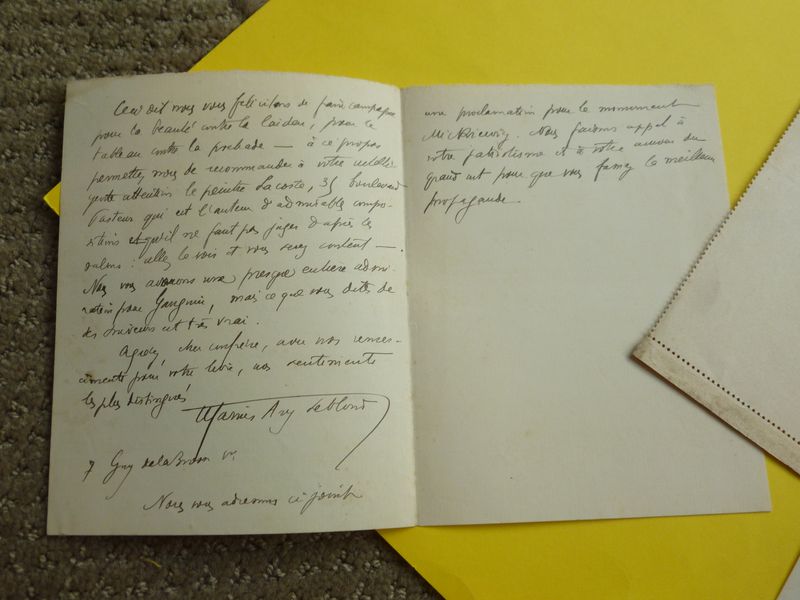 Ceci dit nous vous félicitons de faire campagne
pour la beauté contre la laideur, pour le
tableau contre la pochade — à ce propos
permettez nous de recommander à votre intelli-
gente attention le peintre Lacoste, 35 boulevard
Pasteur qui est l'auteur d'admirables compo-
sitions et qu'il ne faut pas juger d'après les
salons : allez le voir et vous serez content —.
Nous vous avouons une presque entière admi-
ration pour Gauguin, mais ce que vous dites de
des suiveurs est très vrai.
Agréez, cher confrère, avec nos remer-
ciements pour votre livre, nos sentiments
les plus distingués
Marius Ary Leblond
7 Guy de la Brosse Ve
Nous vous adressons ci-joint
une proclamation pour le monument
Mickiewicz. Nous faisons appel à
votre patriotisme et à votre amour du
grand art pour que vous fassiez la meilleure
propagande.